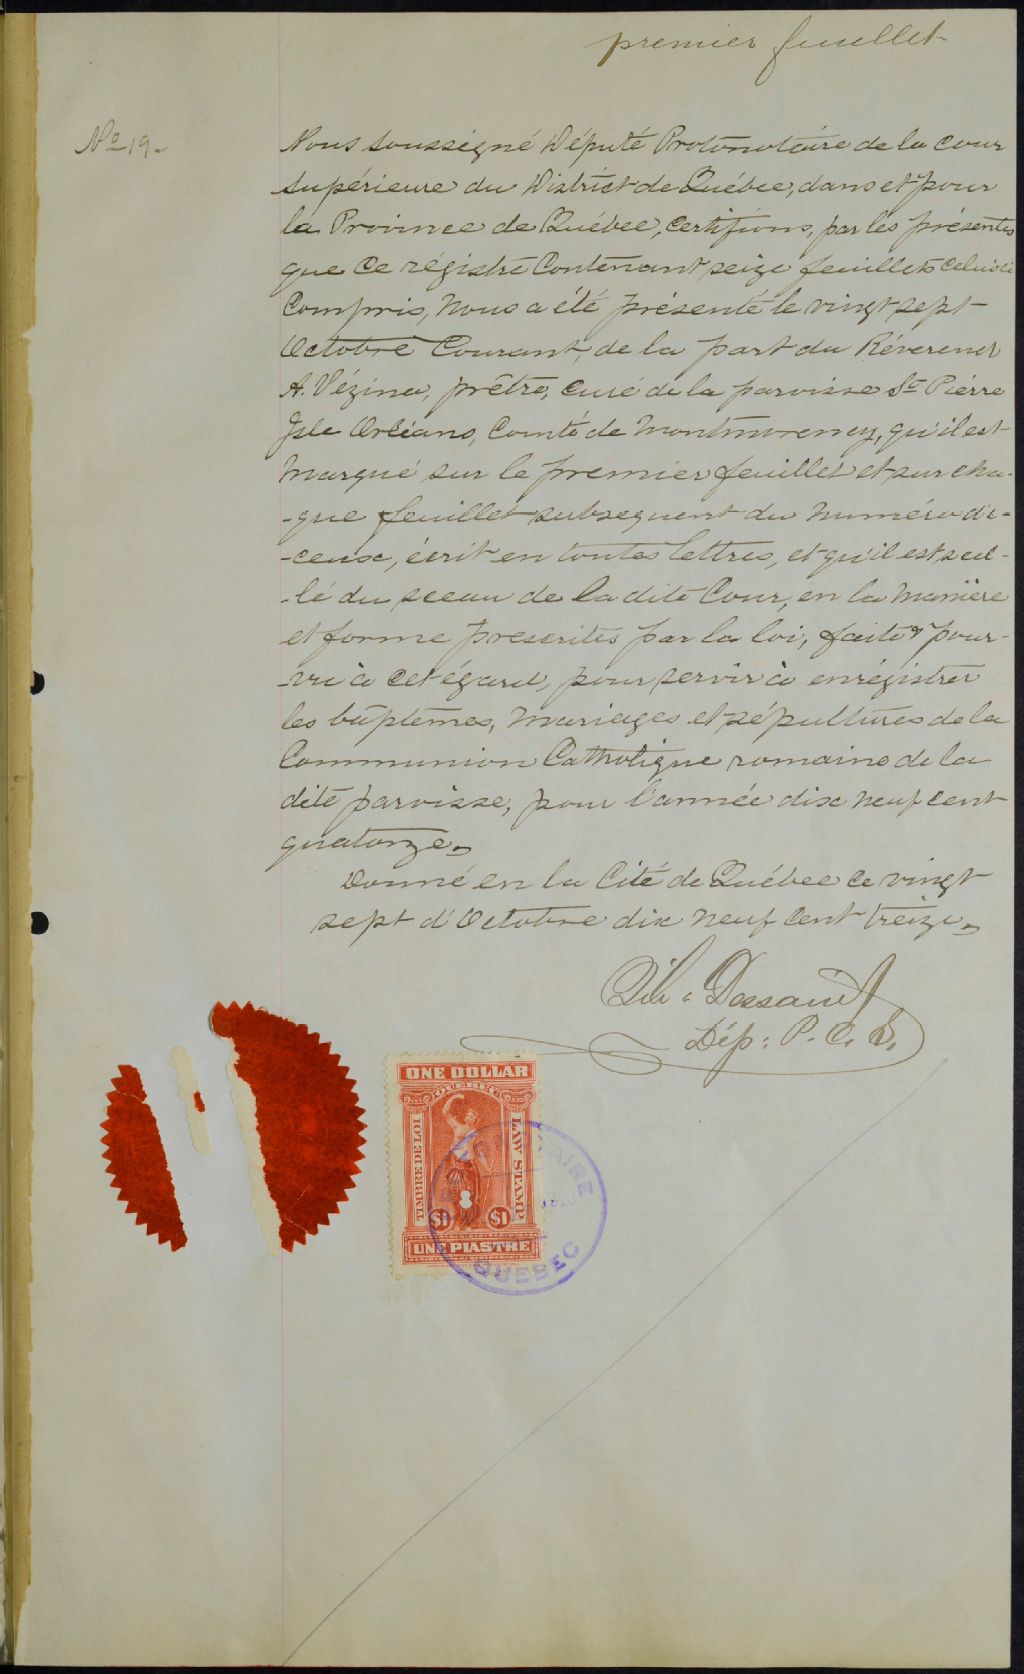 premier feuillet
No 19.
Nous soussigné Député Protonotaire de la Cour
Supérieure du District de Québec, dans et pour
la Province de Québec, certifions, par les présentes
que ce régistre contenant seize feuillets celui ci
compris, nous a été présenté le vingt sept
Octobre courant, de la part du Réverend
A. Vézina, prêtre, curé de la paroisse St Pierre
Isle Orléans, Comté de Montmorency, qu'il est
marqué sur le premier feuillet et sur cha-
-que feuillet subsequent du numéro d'i-
-ceux, écrit en toutes lettres, et qu'il est scel-
-lé du sceau de la dite Cour, en la manière
et forme prescrites par la loi, faite & pour-
-vu à cet égard, pour servir à enrégistrer
les baptêmes, mariages et sépultures de la
Communion Catholique romaine de la
dite paroisse, pour l'année dix neuf cent
quatorze.
Donné en la Cité de Québec ce vingt
sept d'Octobre dix neuf cent treize.
Dessault
Dép: P. C. S.
ONE DOLLAR
QUEBEC
TIMBRE DE LOI
LAW STAMP
$1 $1
UNE PIASTRE
QUEBEC